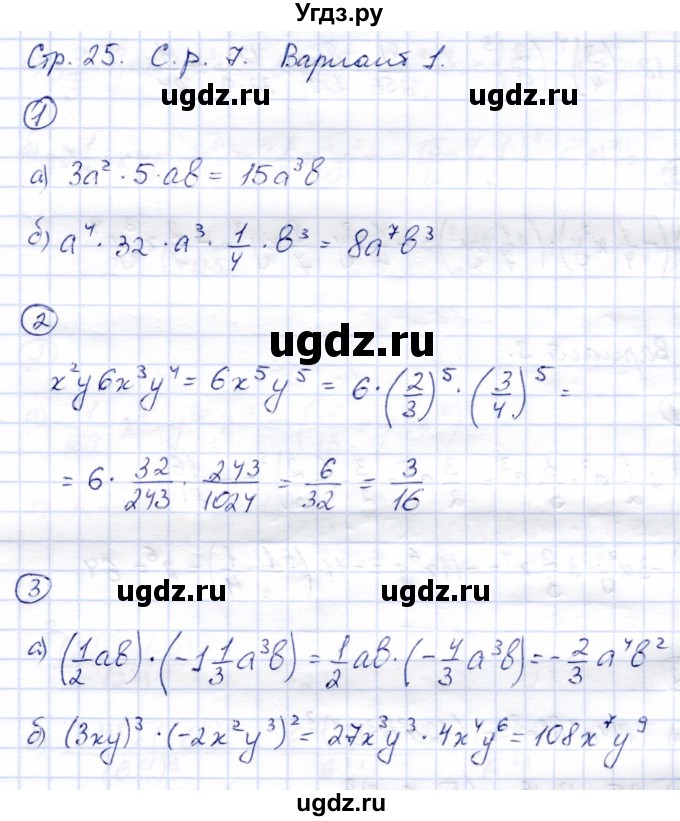 Угдз.ру
Стр. 25. С.р. 7. Вариант 1.
ugdz.ru ugdz.ru
1
а) 3a² · 5 · ab = 15a³b
б) a⁴ · 32 · a³ · 1/4 · b³ = 8a⁷b³
2
ugdz.ru
x²y6x³y⁴ = 6x⁵y⁵ = 6 · (2/3)⁵ · (3/4)⁵ =
= 6 · 32/243 · 243/1024 = 6/32 = 3/16
3
ugdz.ru ugdz.ru
а) (1/2 ab) · (-1 1/3 a³b) = 1/2 ab · (-4/3 a³b) = -2/3 a⁴b²
б) (3xy)³ · (-2x²y³)² = 27x³y³ · 4x⁴y⁶ = 108x⁷y⁹
ugdz.ru